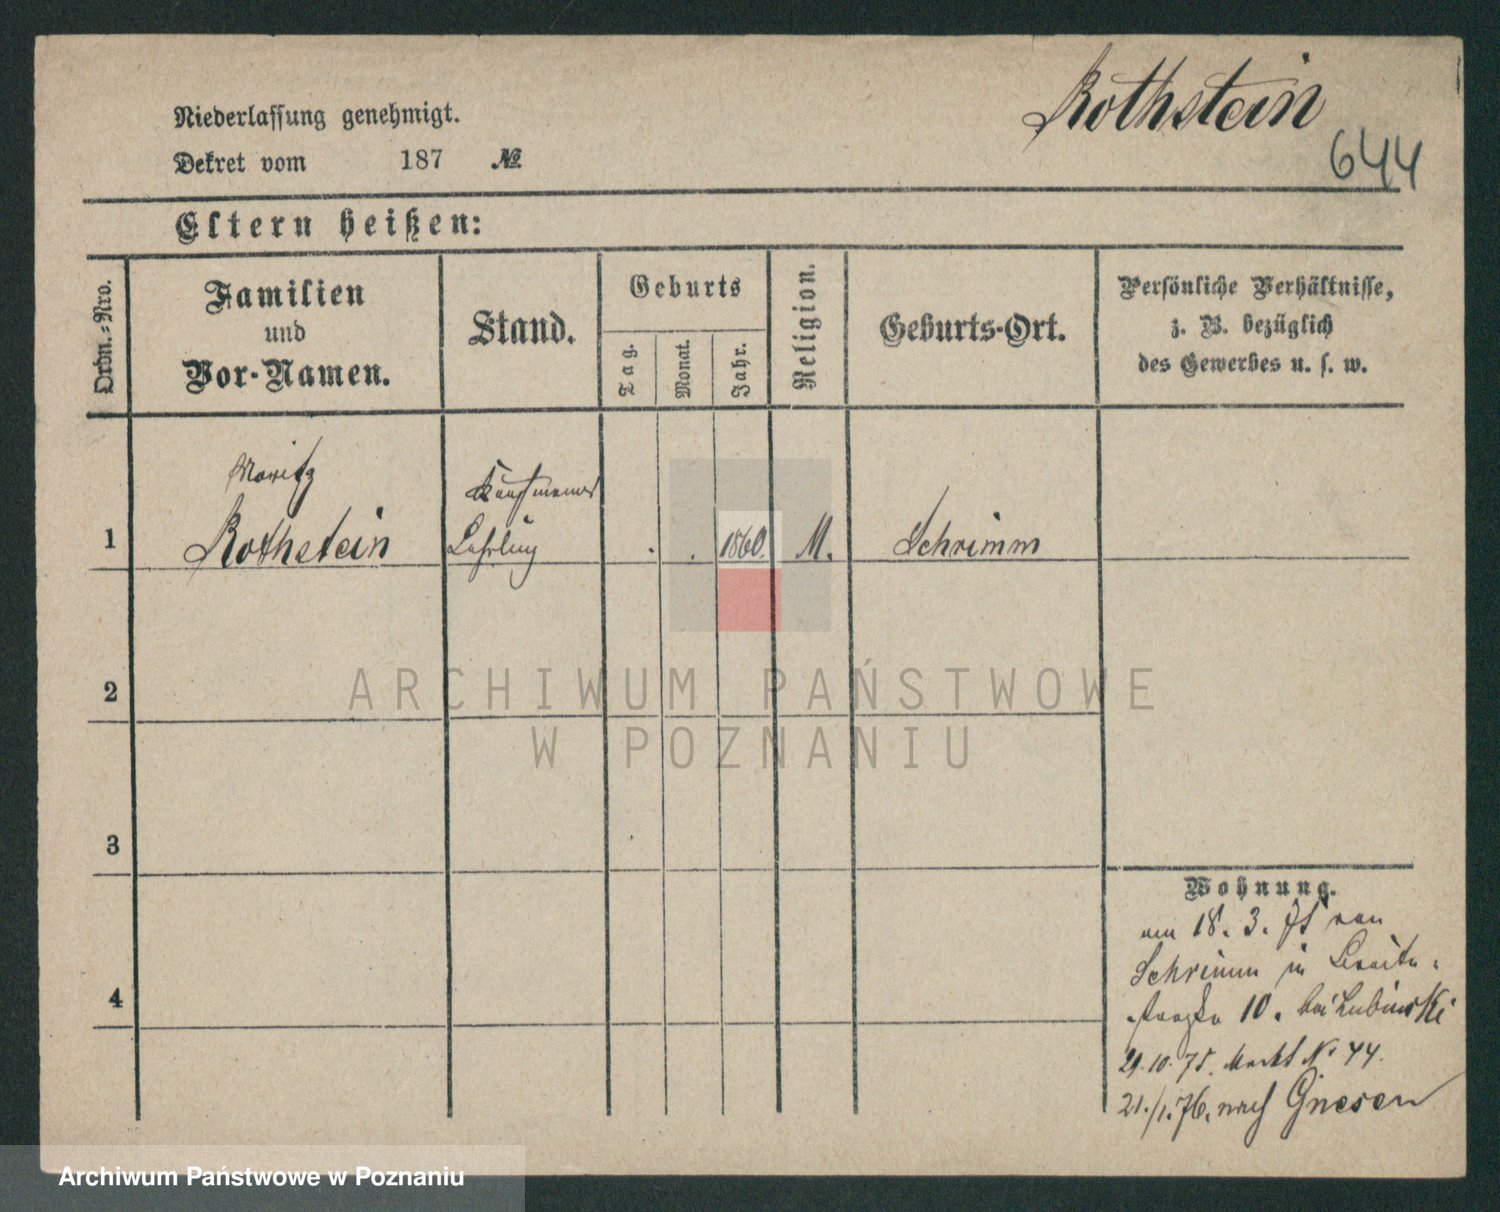 Rothstein
644
Niederlassung genehmigt.
Dekret vom 187 №
Eltern heißen:
Ordn.-Nro.
Familien
und
Vor-Namen.
Stand.
Geburts
Tag.
Monat.
Jahr.
Religion.
Geburts-Ort.
Persönliche Verhältnisse,
z. B. bezüglich
des Gewerbes u. s. w.
Moritz
Kaufmanns
1 Rothstein Lehrling . . 1860. M. Schrimm
2
3
4
Wohnung.
am 18. 3. 75 von
Schrimm in Breite-
straße 10. bei Lubinski
29.10.75. Markt № 44.
21./1.76. nach Gnesen
ARCHIWUM PAŃSTWOWE
W POZNANIU
Archiwum Państwowe w Poznaniu